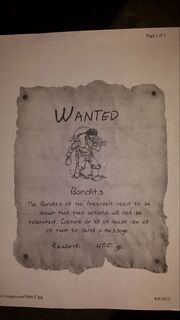 Page 1 of 1
WANTED
Bandits
The Bandits of the Greenbelt need to be
shown that their actions will not be
tolerated. Capture or kill at least six of
of them to send a message.
Reward: 400 gp
8/9/2013